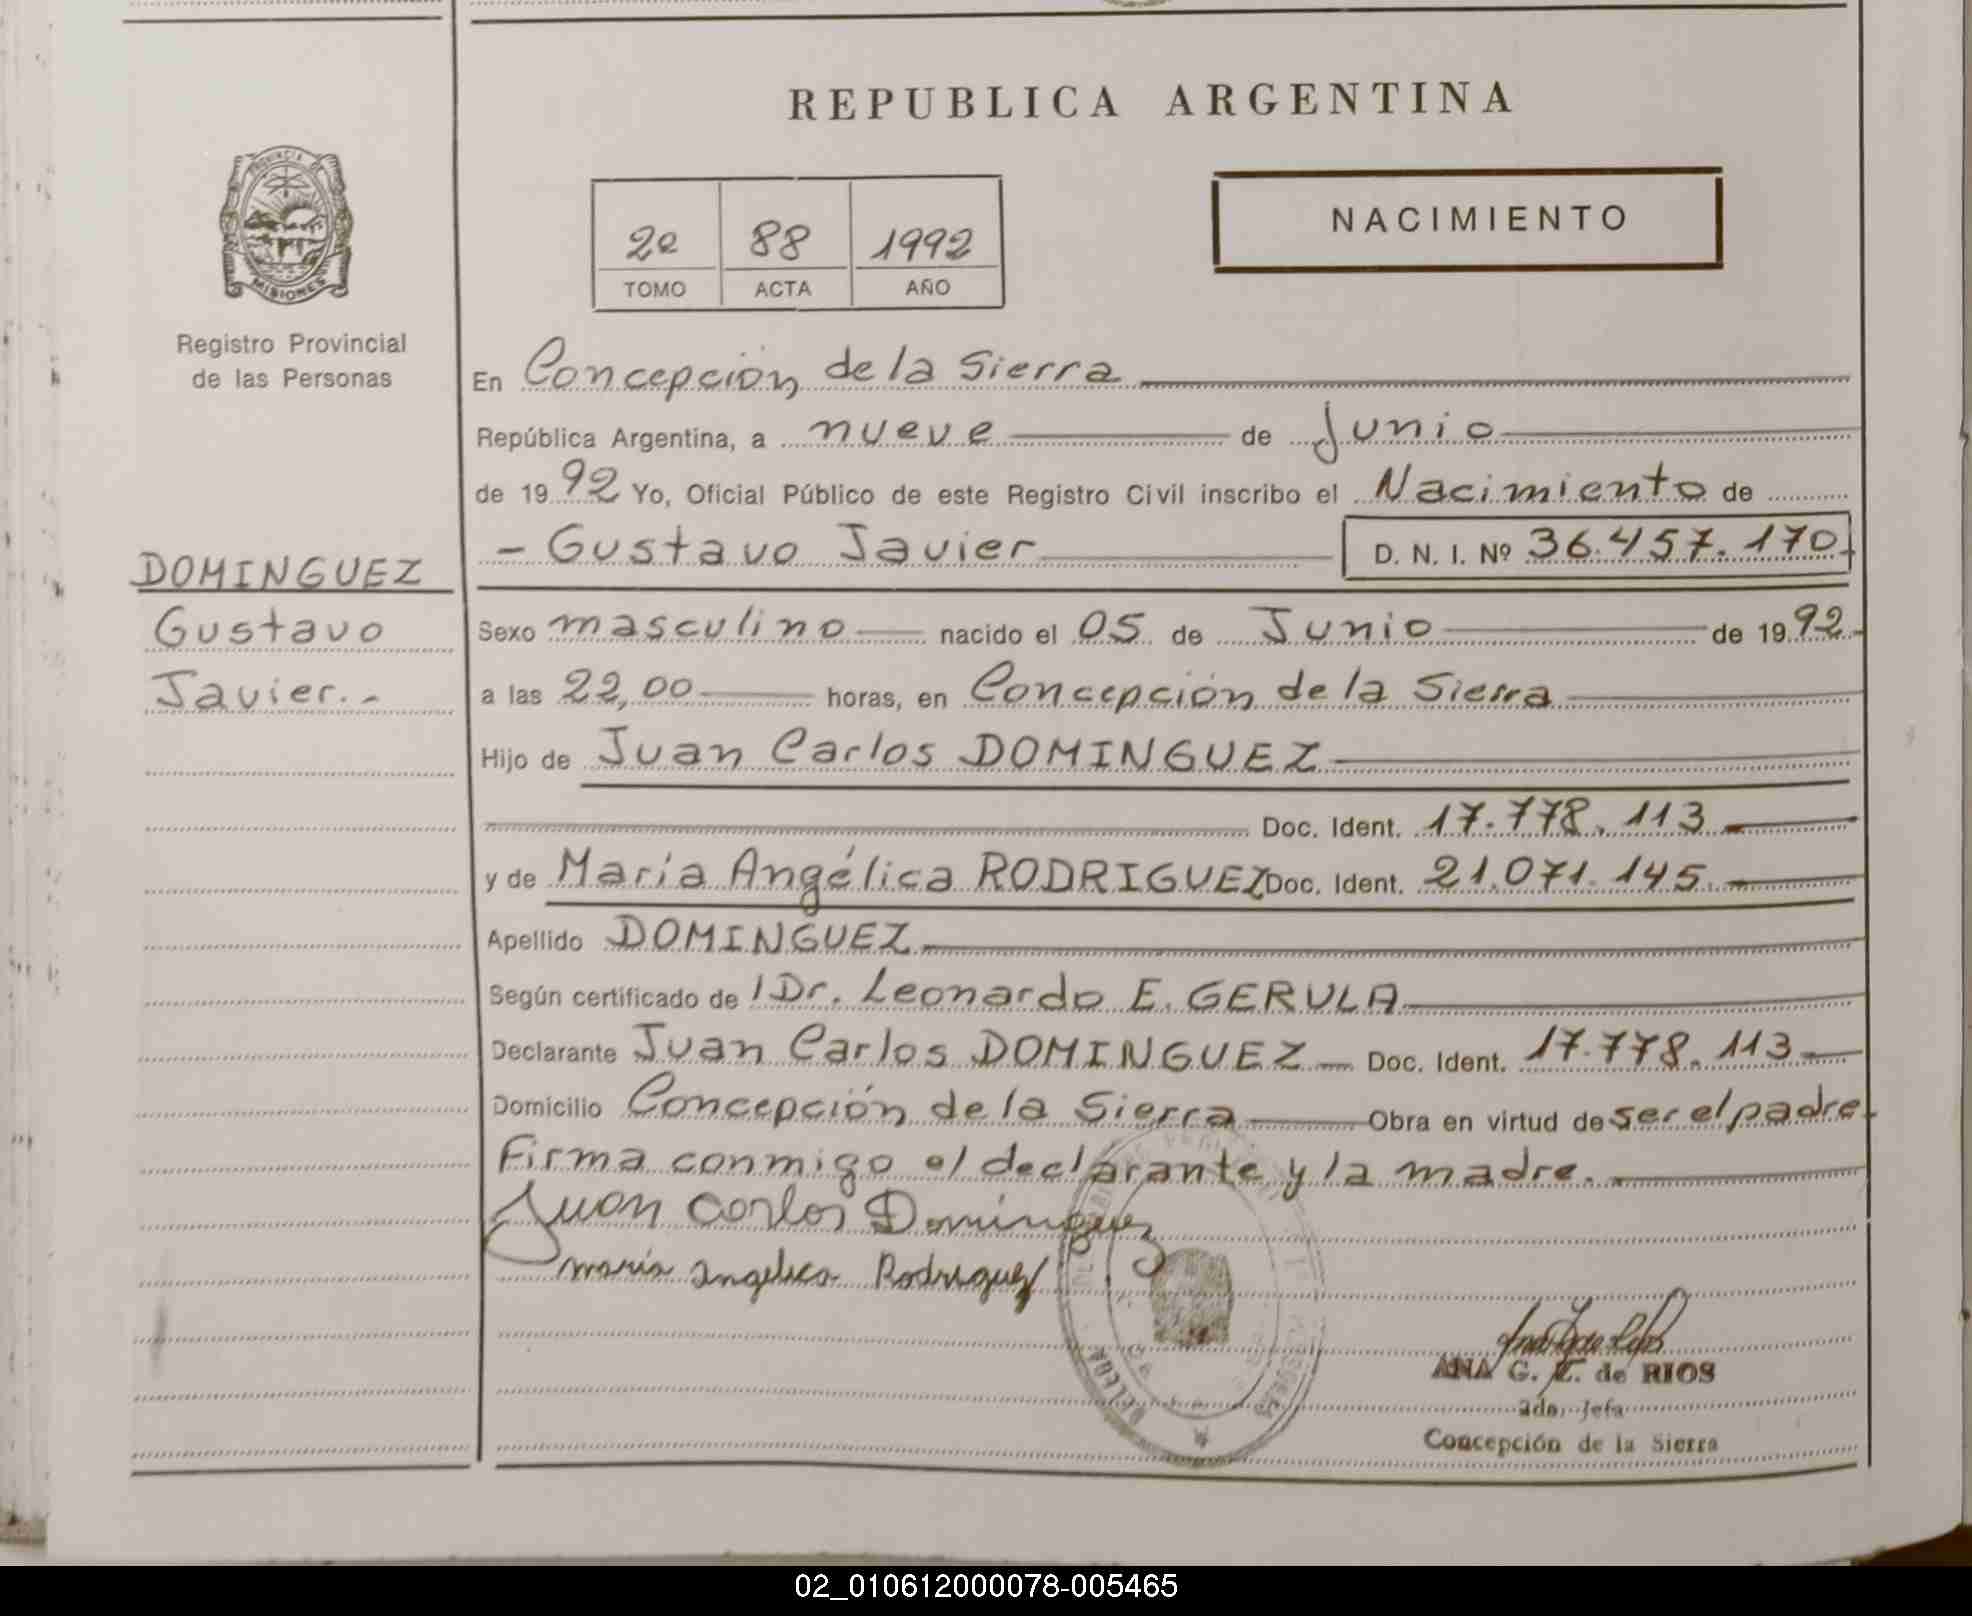 REPUBLICA ARGENTINA
PROVINCIA DE
MISIONES
Registro Provincial
de las Personas
2º 88 1992
TOMO ACTA AÑO
NACIMIENTO
En Concepción de la Sierra
República Argentina, a nueve de Junio
de 1992 Yo, Oficial Público de este Registro Civil inscribo el Nacimiento de
- Gustavo Javier D. N. I. Nº 36.457.170
DOMINGUEZ
Gustavo
Javier.-
Sexo masculino nacido el 05 de Junio de 1992.-
a las 22,00 horas, en Concepción de la Sierra
Hijo de Juan Carlos DOMINGUEZ
Doc. Ident. 17.778.113
y de María Angélica RODRIGUEZ Doc. Ident. 21.071.145.
Apellido DOMINGUEZ
Según certificado de l Dr. Leonardo E. GERULA
Declarante Juan Carlos DOMINGUEZ Doc. Ident. 17.778.113
Domicilio Concepción de la Sierra Obra en virtud de ser el padre.
Firma conmigo el declarante y la madre.
Juan Carlos Dominguez
maría angelica Rodriguez
ANA G. de RIOS
2da. Jefa
Concepción de la Sierra
02_010612000078-005465